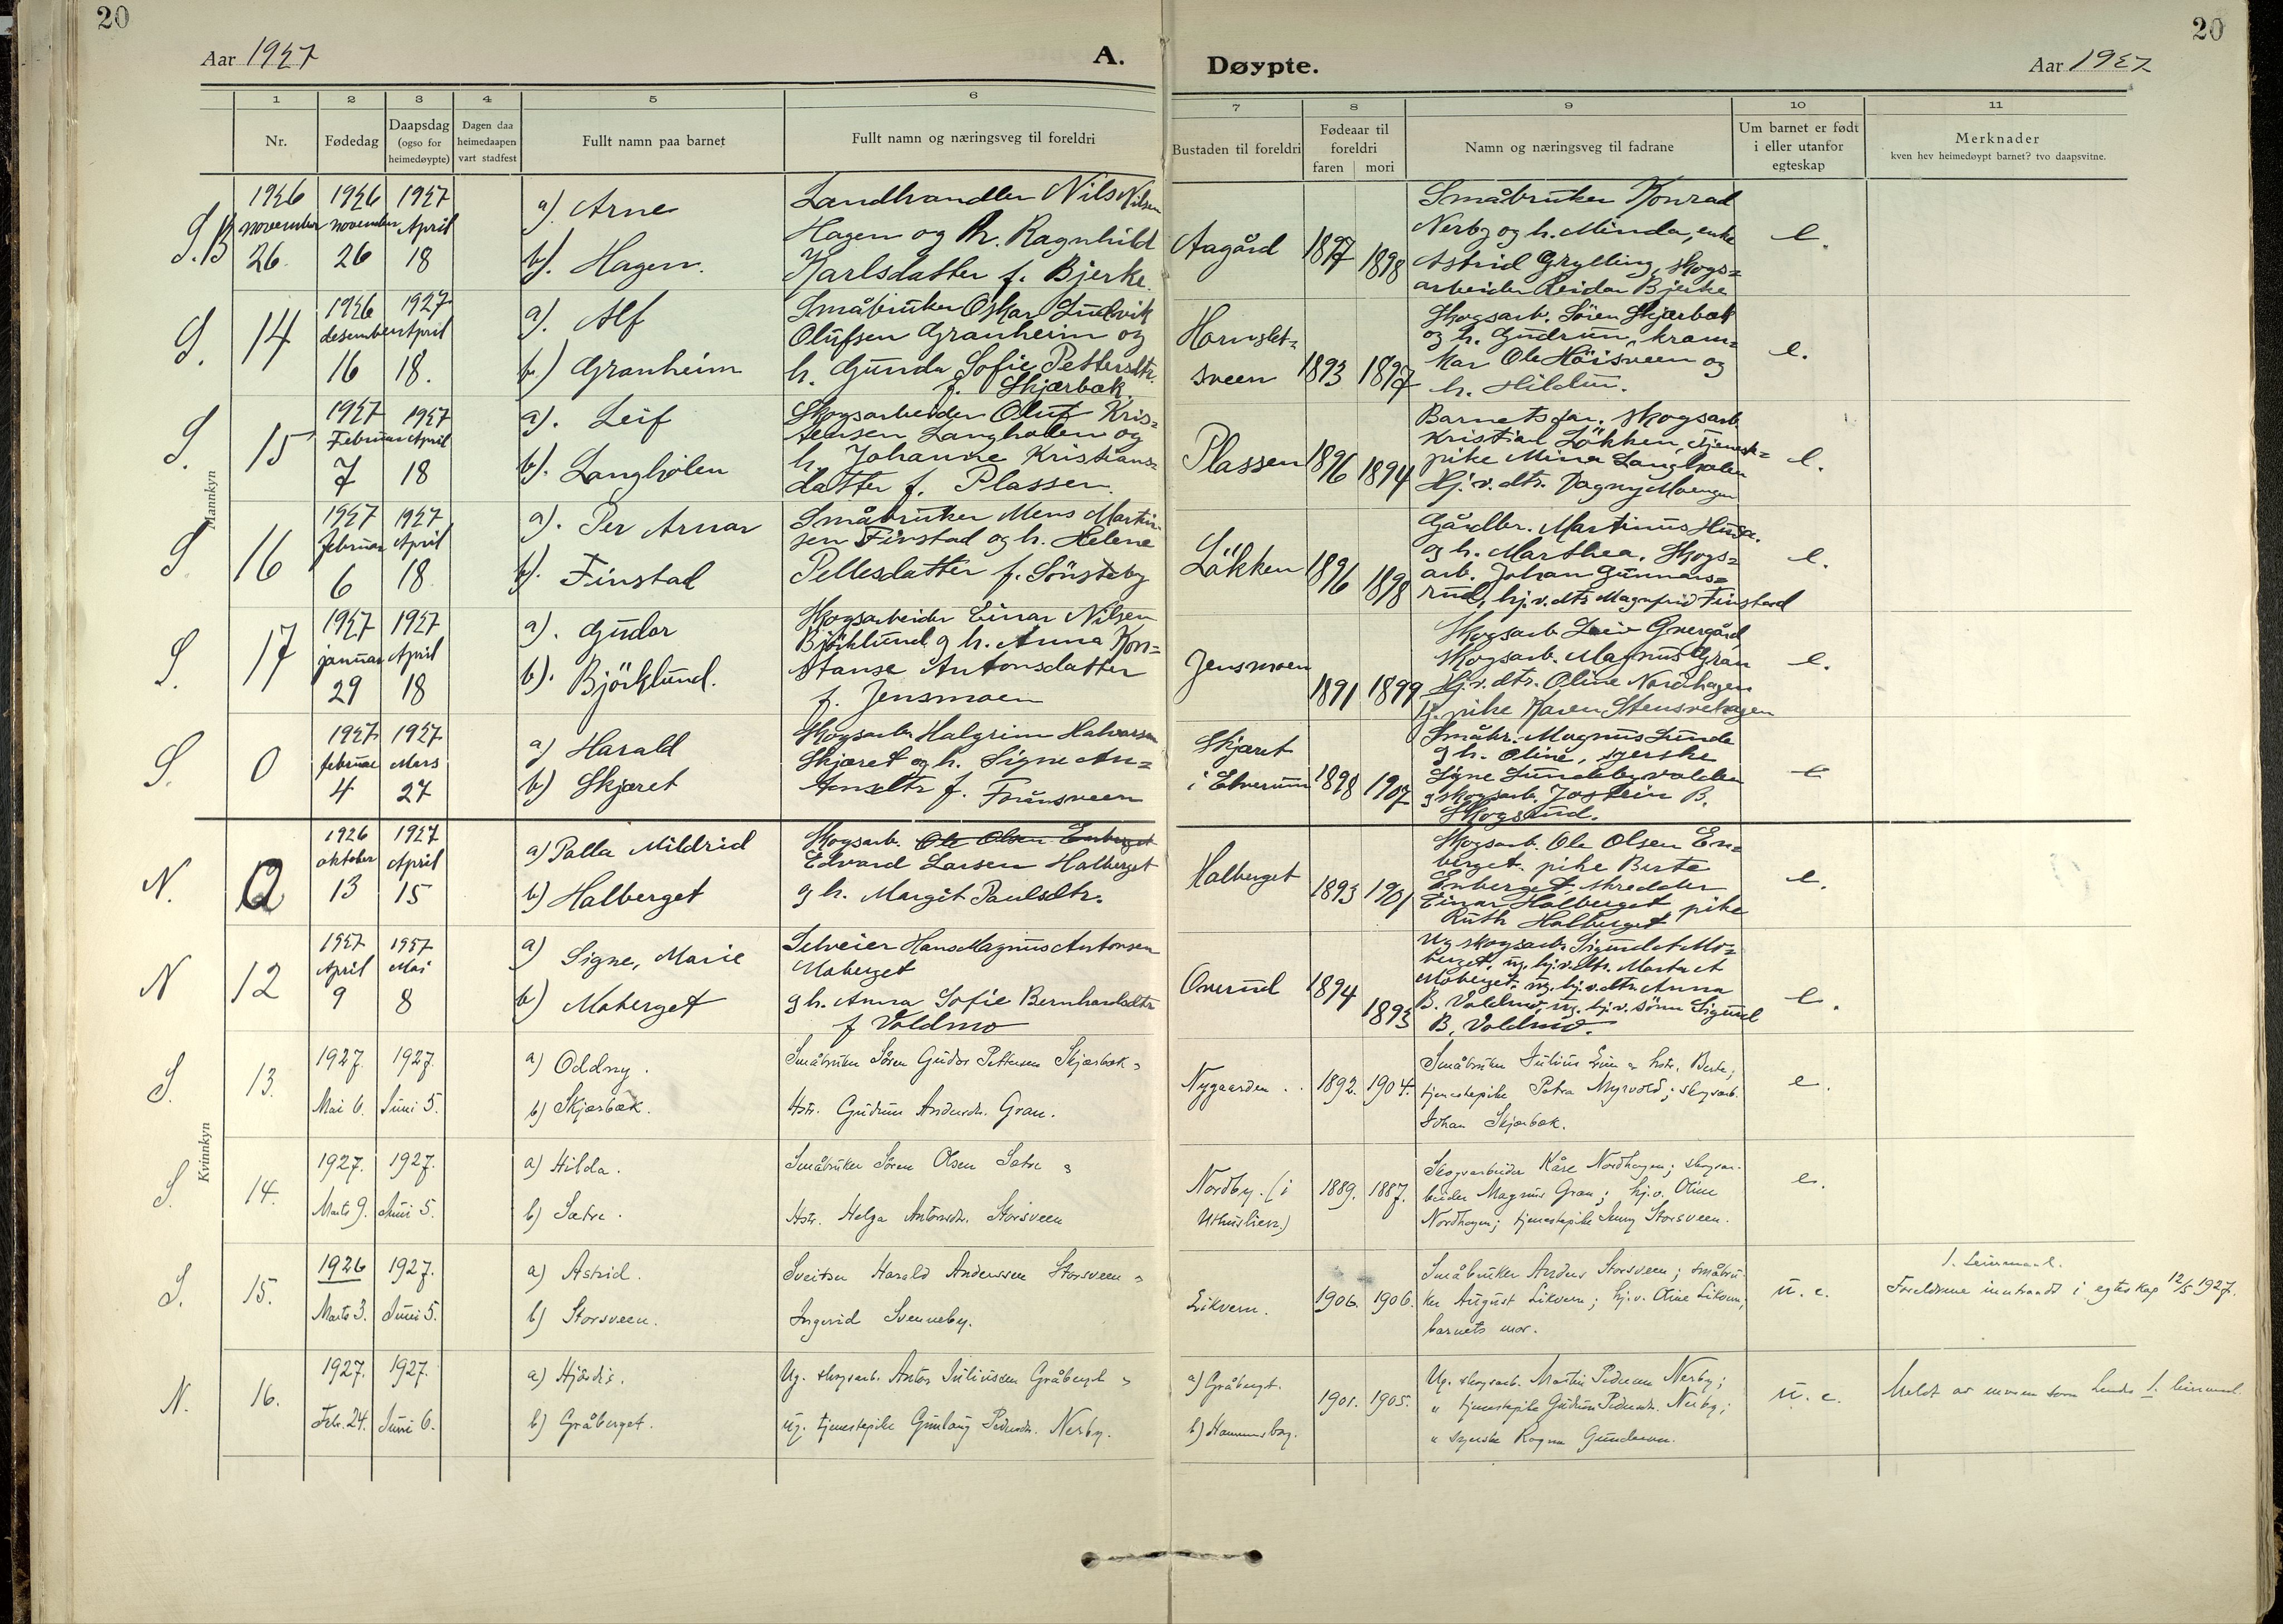 20
20
Aar 1927
A.
Døypte.
Aar 1927
1
2
3
4
5
6
7
8
9
10
11
Nr.
Fødedag
Daapsdag
(ogso for
heimedøypte)
Dagen daa
heimedaapen
vart stadfest
Fullt namn paa barnet
Fullt namn og næringsveg til foreldri
Bustaden til foreldri
Fødeaar til
foreldri
faren mori
Namn og næringsveg til fadrane
Um barnet er født
i eller utanfor
egteskap
Merknader
kven hev heimedøypt barnet? tvo daapsvitne.
Mannkyn
S.B
1926
november
26.
1926
november
26
1927
April
18
a). Arne
b). Hagen.
Landhandler Nils Nilsen
Hagen og h. Ragnhild
Karlsdatter f. Bjerke.
Aagård
1897 1898
Småbruker Konrad
Nerby og h. Minda, enke
Astrid Grylling, skogs=
arbeider Reidar Bjerke
e.
S.
14
1926
desember
16
1927
April
18.
a). Alf
b) Granheim
Småbruker Oskar Ludvik
Olufsen Granheim og
h. Gunda Sofie Pettersdtr.
f. Skjærbæk.
Hornslet=
sveen
1893 1897
Skogsarb. Søren Skjærbæk
og h. Gudrun, kram=
kar Ole Höisveen og
h. Hildur.
e.
S.
15
1927
Februar
7
1927
April
18
a). Leif
b). Langholen
Skogsarbeider Oluf Kris=
tensen Langholen og
h. Johanne Kristians=
datter f. Plassen.
Plassen
1896 1894
Barnets far, skogsarb.
Kristian Løkken, tjeneste=
pike Mina Langholen
Hj.v.dtr. Dagny Moengen
e.
S
16
1927
februar
6
1927
April
18
a). Per Arnar
b). Finstad
Småbruker Mens Martin
sen Finstad og h. Helene
Pellesdatter f. Sønsteby
Løkken
1896 1898
Gårdbr. Martinus Husa.
og h. Marthea. Skogs=
arb. Johan Gunnars=
rud, hj.v.dtr Magnhild Finstad
e.
S.
17
1927
januar
29
1927
April
18
a). Gudar
b). Björklund.
Skogsarbeider Einar Nilsen
Björklund og h. Anna Kon=
stanse Antonsdatter
f. Jensmoen
Jensmoen
1891 1899
Skogsarb. Magnus Gran
Hj.v.dtr. Oline Nordhagen
Tj. pike Karen Stensvehagen
e.
S.
0
1927
februar
4
1927
Mars
27
a) Harald
b) Skjæret
Skogsarb. Halgrim Halvorsen
Skjæret og h. Signe An=
tonsdtr f. Furusveen
Skjæret
i Elverum
1898 1907
Småbr. Magnus Lunde
og h. Oline, syerske
Signe Lundebyvollen
og skogsarb. Jostein B.
Skogsrud.
e
Kvinnkyn
N.
0
1926
oktober
13
1927
April
15
a) Palla Mildrid
b) Halberget
Skogsarb. Ole Olsen Enberget
Edvard Larsen Halberget
og h. Margit Paulsdtr.
Halberget
1893 1901
Skogsarb. Ole Olsen En=
berget. pike Berte
Enberget, skredder
Einar Halberget pike
Ruth Halberget
e.
N
12
1927
April
9
1927
Mai
8
a) Signe, Marie
b) Moberget
Selveier Hans Magnus Antonsen
Moberget
og h. Anna Sofie Bernhardsdtr
f Voldmo
Overud
1894 1893
Ug skogsarb. Sigurd A Mo=
berget, ug. hj.v.dtr. Marta A
Moberget, ug. hj.v.dtr. Anna
B. Voldmo, ug. hj.v. sönn Sigurd
B. Voldmo.
e.
S.
13.
1927.
Mai 6.
1927.
Juni 5.
a) Oddny.
b) Skjærbæk.
Småbruker Sören Gudar Pettersen Skjærbæk
Hstr. Gudrun Andersdr. Gran.
Nygaarden.
1892. 1904.
Småbruker Julius Lien Hstr. Berte;
tjenestepike Petra Myrvold; skogsarb.
Johan Skjærbæk.
e.
S.
14.
1927.
Marts 9.
1927.
Juni 5.
a) Hilda.
b) Sætre.
Småbruker Sören Olsen Sætre
Hstr. Helga Antonsdr. Storsveen
Nordby. (i
Uthuslien.)
1889. 1887.
Skogsarbeider Kåre Nordhagen; skogsar-
beider Magnus Gran; hj.v. Oline
Nordhagen; tjenestepike Jenny Storsveen.
e.
S.
15.
1926
Marts 3.
1927.
Juni 5.
a) Astrid.
b) Storsveen.
Sveitser Harald Anderssen Storsveen
Ingerid Svenneby.
Likvern.
1906. 1906.
Småbruker Anders Storsveen; småbru-
ker August Likvern; hj.v. Oline Likvern;
barnets mor.
u. e.
1. leiermaal.
Foreldrene inntraadt i egteskap 12/5 1927.
N.
16.
1927.
Feb. 24.
1927.
Juni 6.
a) Hjördis.
b) Gråberget.
Ug. skogsarb. Anton Juliussen Gråberget
ug. tjenestepike Gunlaug Pedersdr. Nerby.
a) Gråberget.
1901. 1905.
Ug. skogsarb. Martin Pedersen Nerby;
" tjenestepike Gudrun Pedersdr. Nerby;
" syerske Ragna Gundersen.
u. e.
Meldt av moren som hendes 1. leiermaal.